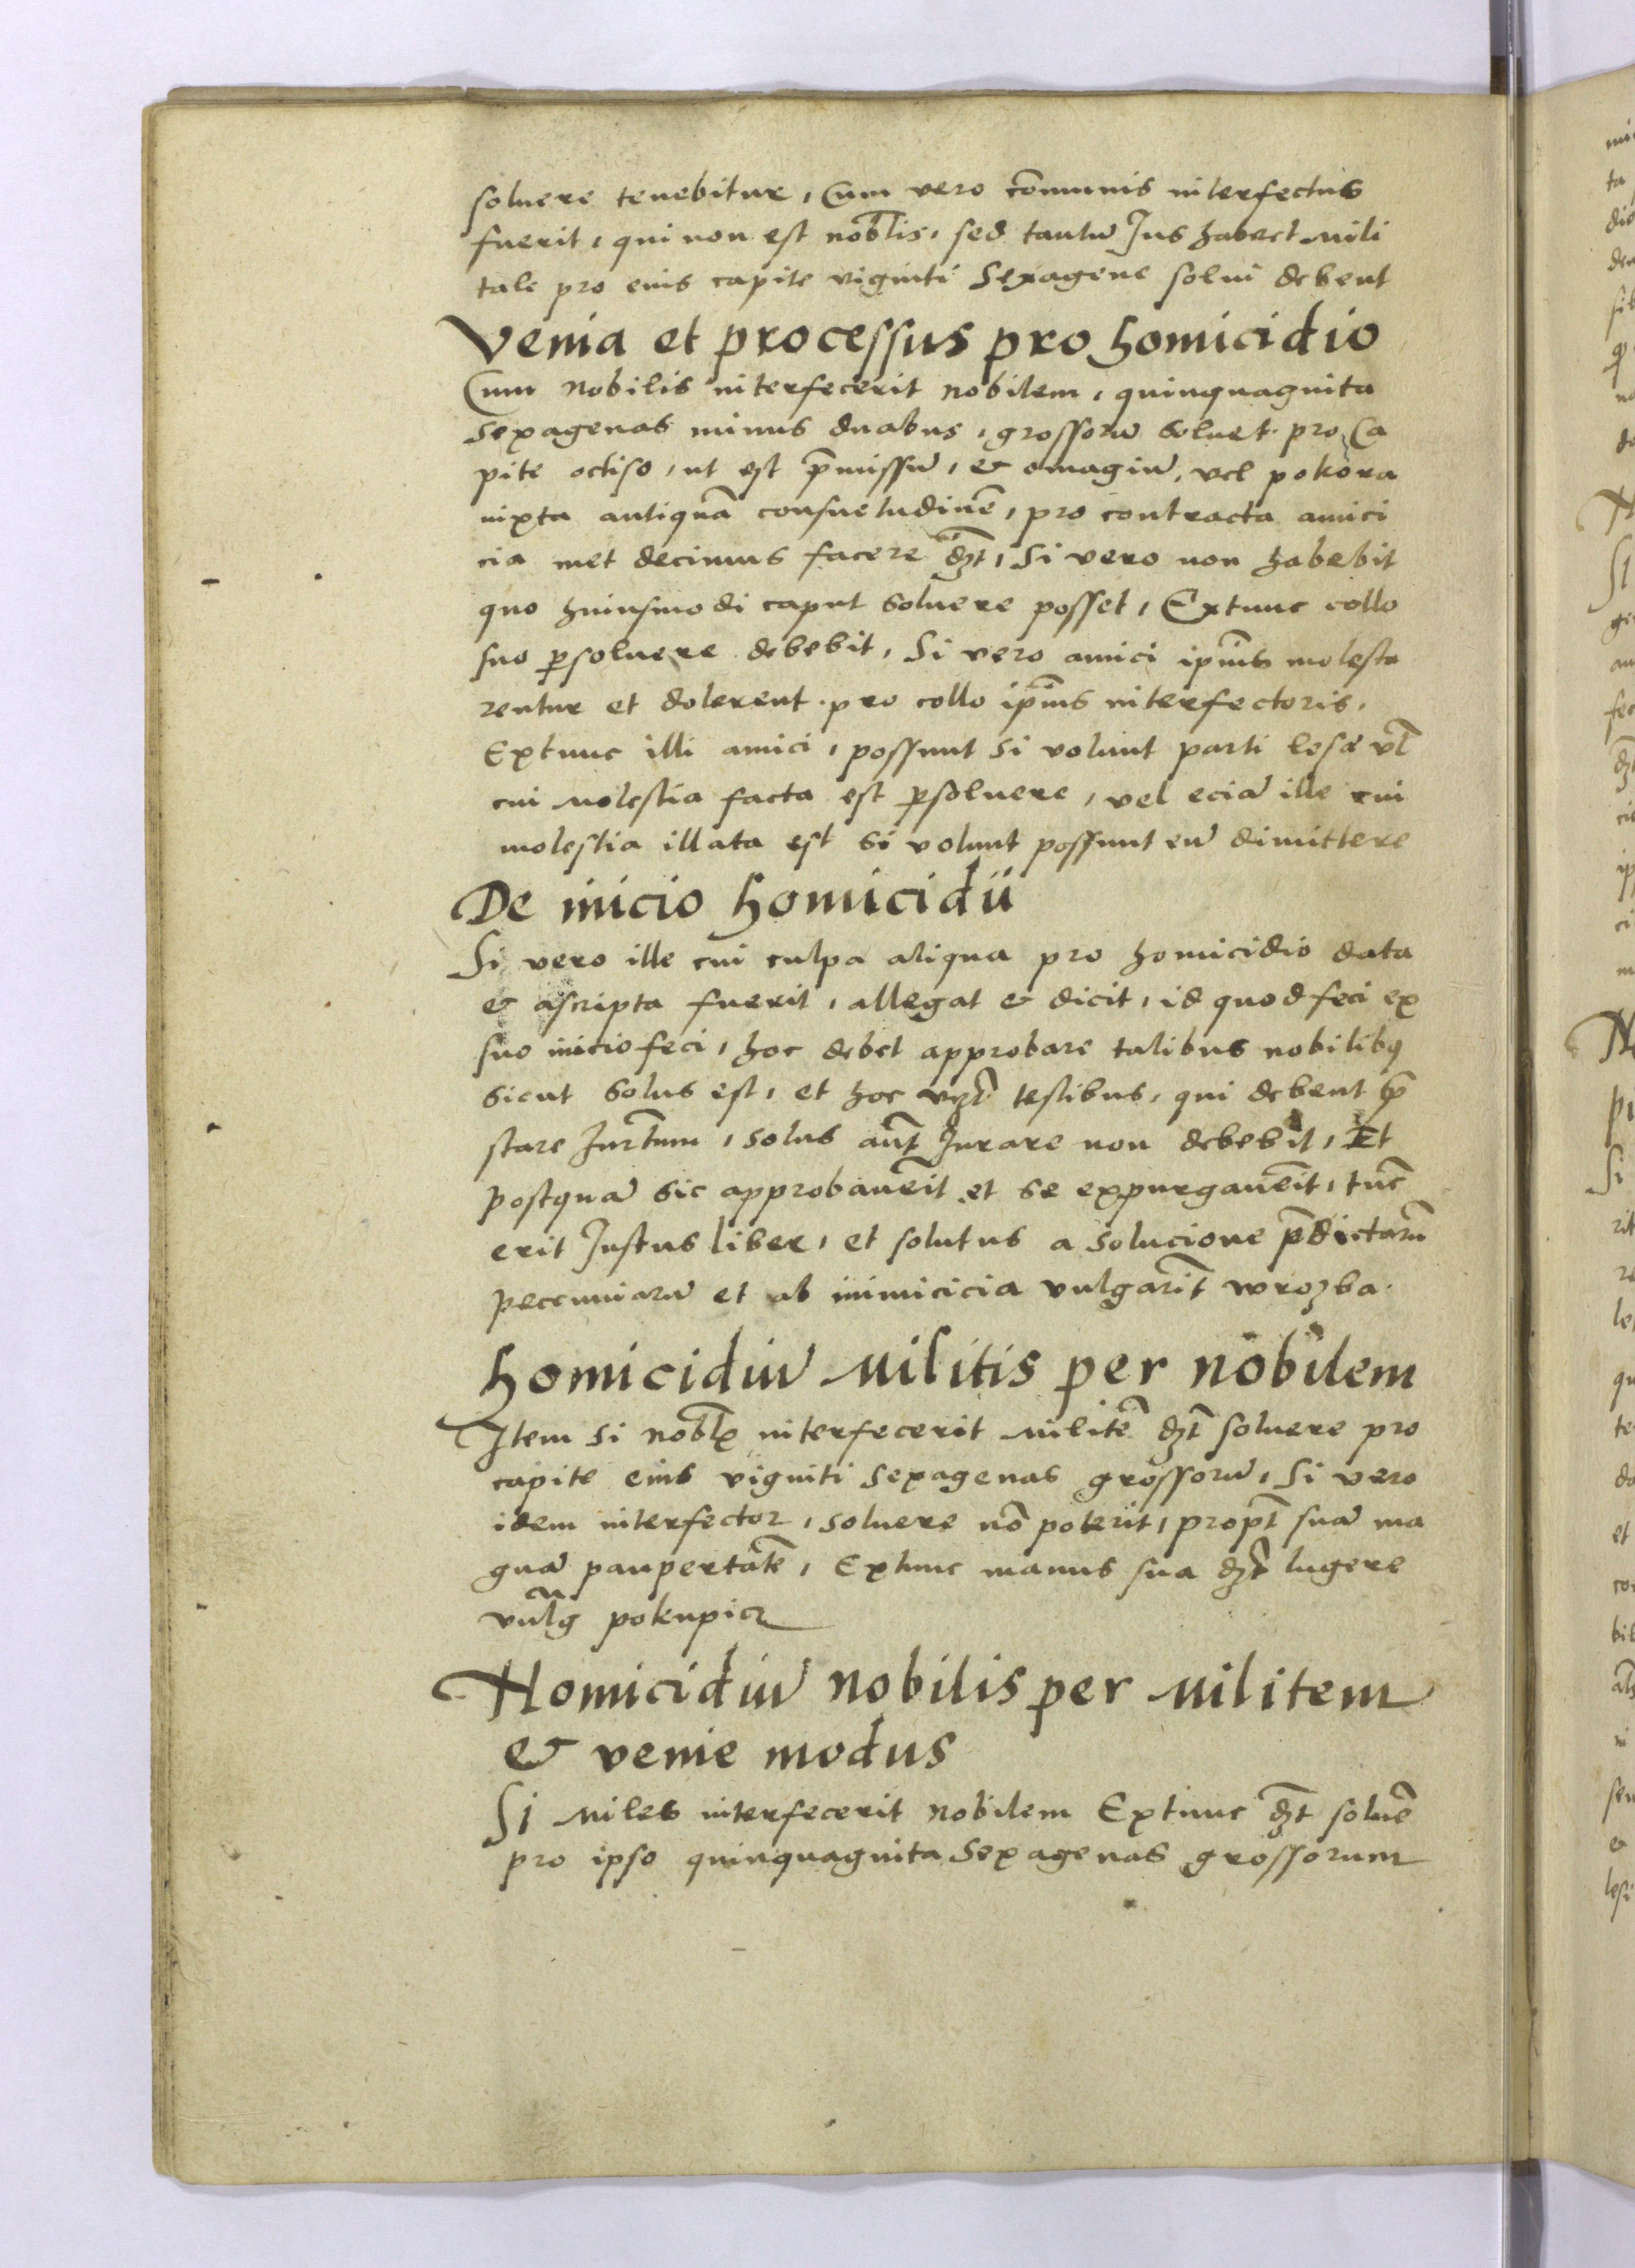 soluere tenebitur, Cum vero cōmunis interfectus
fuerit, qui non est nobl̃is, sed tantū Jus habet mili
tale pro eius capite viginti Sexagene solui debent
Venia et processus pro homicidio
Cum nobilis interfecerit nobilem, quinquaginta
sexagenas minus duabus, grossorū soluet pro Ca
pite occiso, ut est p̄missū, & omagiū, vel pokora
iuxta antiquā consuetudinē, pro contracta amici
cia met decimus facere dȝt̄, Si vero non habebit
quo huiusmodi caput soluere posset, Extunc collo
suo ꝑsoluere debebit, Si vero amici ip̄ius molesta
rentur et dolerent pro collo ip̄ius interfectoris,
Extunc illi amici, possunt si volunt parti lese vl̄
cui molestia facta est ꝑsoluere, vel eciā ille cui
molestia illata est si volunt possunt eū dimittere
De inicio homicidii
Si vero ille cui culpa aliqua pro homicidio data
& ascripta fuerit, allegat & dicit, id quod feci ex
suo inicio feci, hoc debet approbare talibus nobilibꝯ
sicut solus est, et hoc testibus, qui debent p̄
stare Jur̄tum, solus aūt Jurare non debebit, Et
postquā sic approbauēit et se expurgauēit, tūc
erit Justus liber, et solutus a solucione p̄dictarū
peccuniarū et ab inimicicia vulgarīt wrożba.
Homicidiū militis per nobilem
Item si nobl̃ interfecerit militē dȝt̄ soluere pro
capite eius viginti sexagenas grossorū, Si vero
idem interfector, soluere nō poterit, propt̄ suā ma
gnā paupertatē, Extunc manus sua dȝt̄ lugere
vulg pokupicz
Homicidiū nobilis per militem
& venie modus
Si miles interfecerit nobilem Extunc dȝt̄ soluē
pro ipso quinquaginta sexagenas grossorum